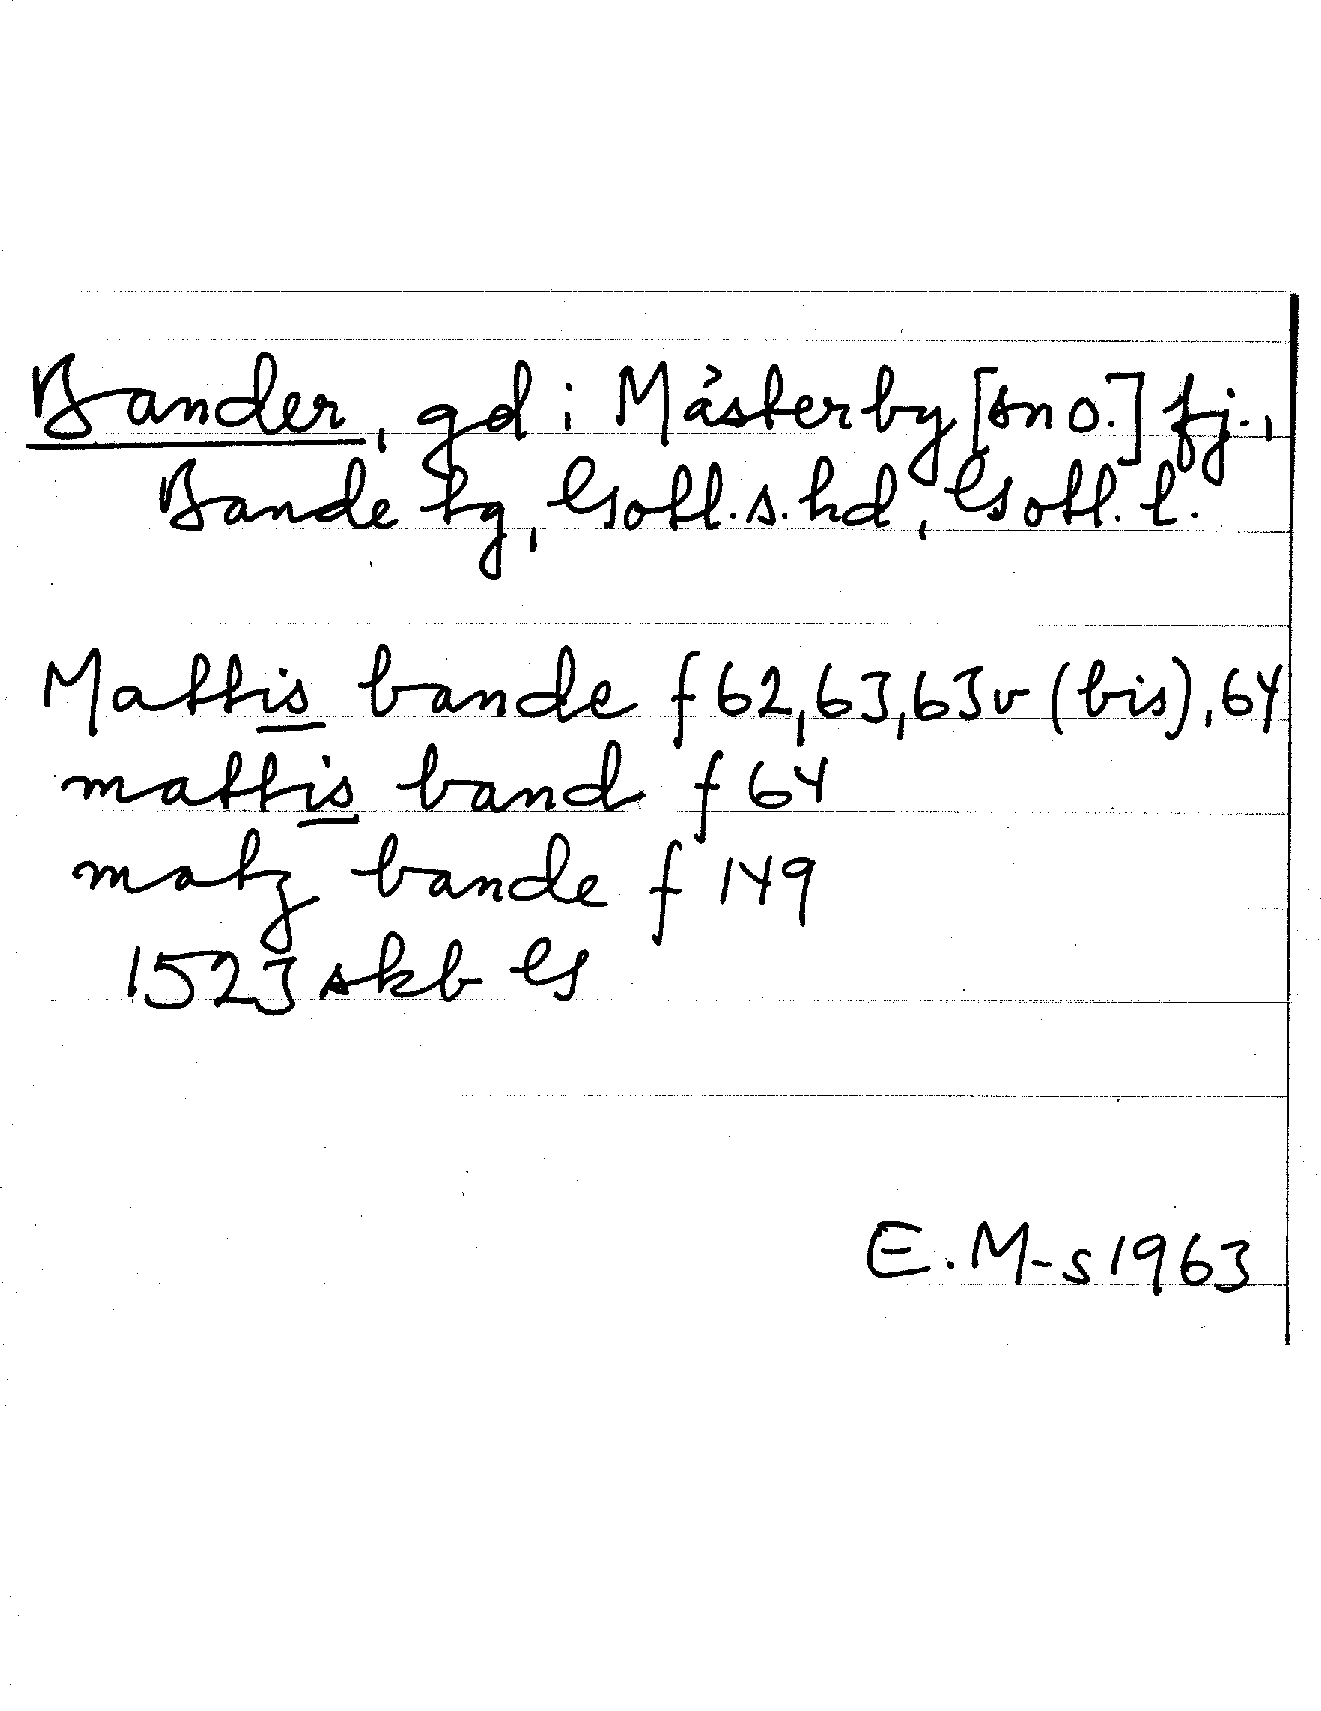 Bander, gd i Mästerby [sn o.] fj.,
Bande tg, Gotl. s. hd, Gotl. l.
Mattis bande f 62, 63, 63v (bis), 64
mattis band f 64
matz bande f 149
1523 skb G
E. M-s 1963